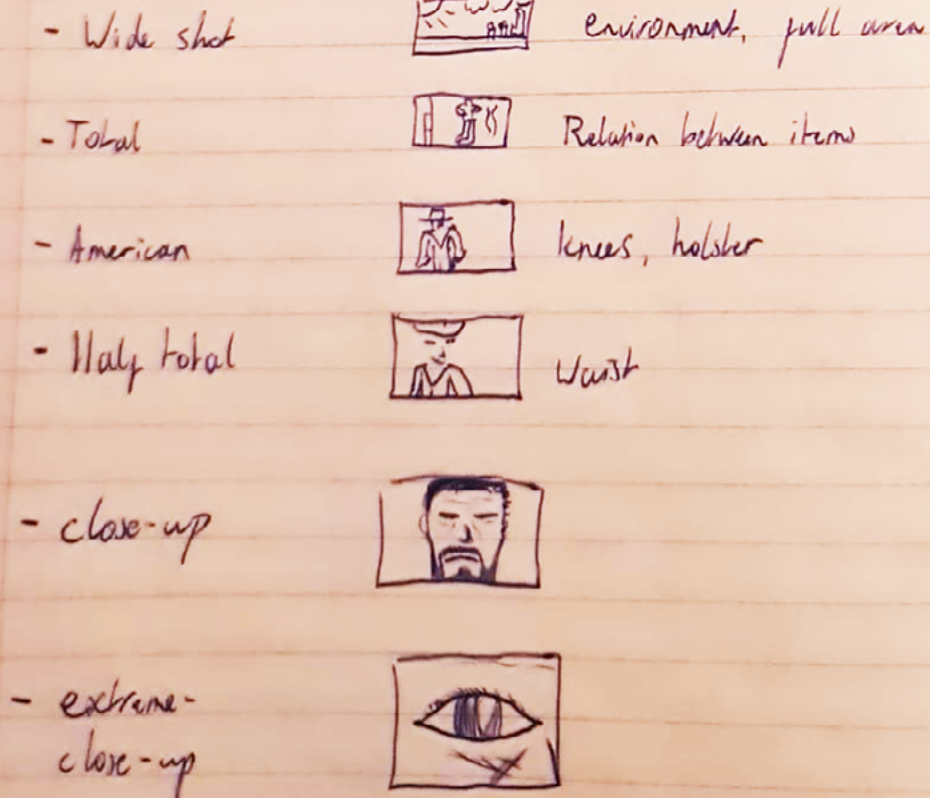 - Wide shot environment, full area
- Total Relation between items
- American knees, holster
- Half total Waist
- close-up
- extreme-
close-up